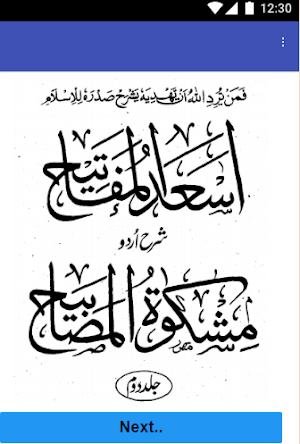 12:30
فَمَنْ يُّرِدِ اللّٰهُ اَنْ يَّهْدِيَهٗ يَشْرَحْ صَدْرَهٗ لِلْاِسْلَامِ
اَسْعَدُ الْمَفَاتِيْح
شرح اُردو
مِشْكٰوةُ الْمَصَابِيْح
جلد دوم
Next..